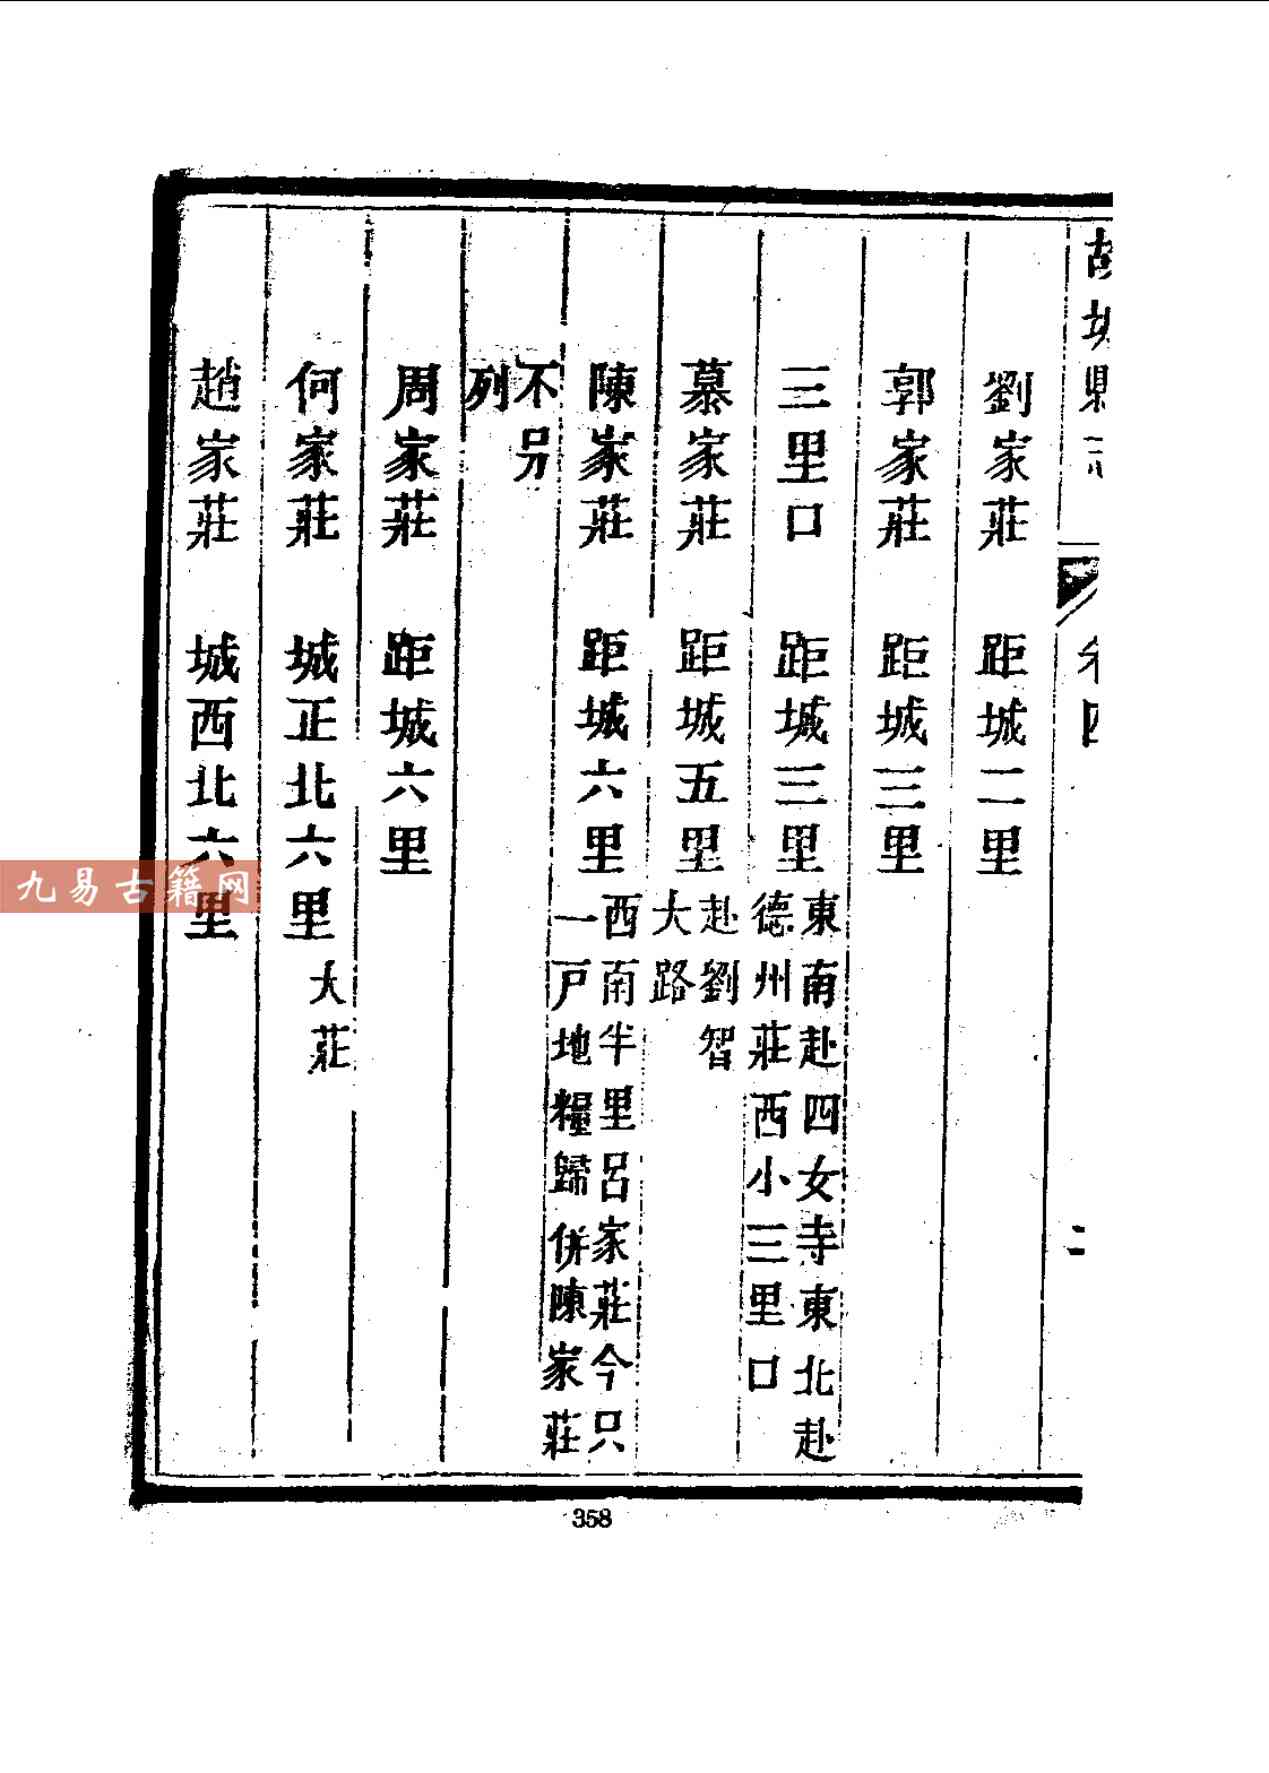 故城縣志
卷四
二
劉家莊 距城二里
郭家莊 距城三里
三里口 距城三里 東南赴四女寺東北赴
德州莊西小三里口
慕家莊 距城五里 赴劉智
大路
陳家莊 距城六里 西南半里呂家莊今只
一戸地糧歸併陳家莊
不另
列
周家莊 距城六里
何家莊 城正北六里 大莊
趙家莊 城西北六里
九易古籍网
358